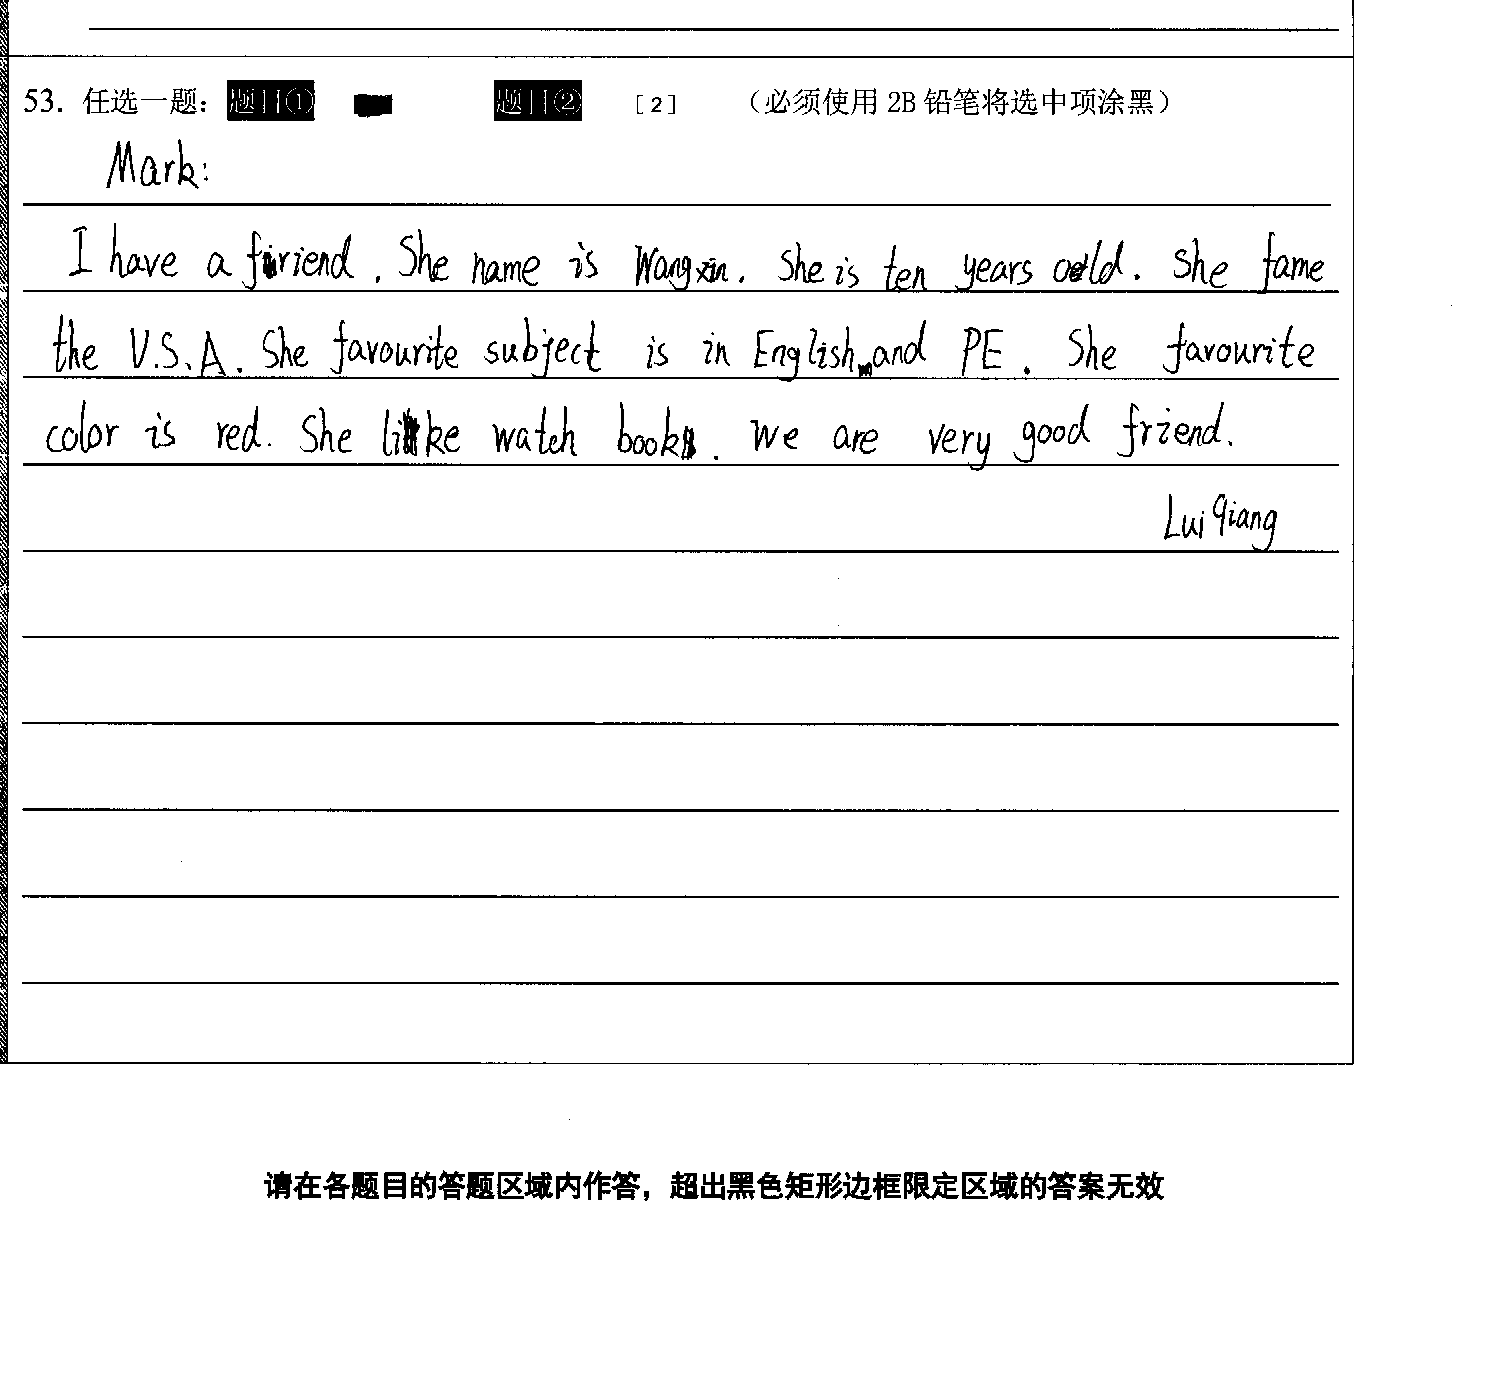 53. 任选一题： 题目① 题目② [2] （必须使用 2B 铅笔将选中项涂黑）
Mark:
I have a friend. She name is Wangxin. She is ten years old. She fame
the U.S.A. She favourite subject is in English and PE. She favourite
color is red. She like watch book. We are very good friend.
Lui Qiang
请在各题目的答题区域内作答，超出黑色矩形边框限定区域的答案无效